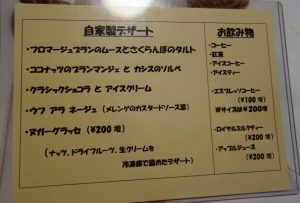 自家製デザート
・フロマージュブランのムースとさくらんぼのタルト
・ココナッツのブランマンジェ と カシスのソルベ
・クラシックショコラ と アイスクリーム
・ウフ アラ ネージュ (メレンゲのカスタードソース添)
・ヌガーグラッセ (¥200 増)
(ナッツ、ドライフルーツ、生クリームを
冷凍庫で固めたデザート)
お飲み物
・コーヒー
・紅茶
・アイスコーヒー
・アイスティー
・エスプレッソコーヒー
(¥100 増)
Wサイズは¥200増
・ロイヤルミルクティー
(¥200 増)
・アップルジュース
(¥200 増)